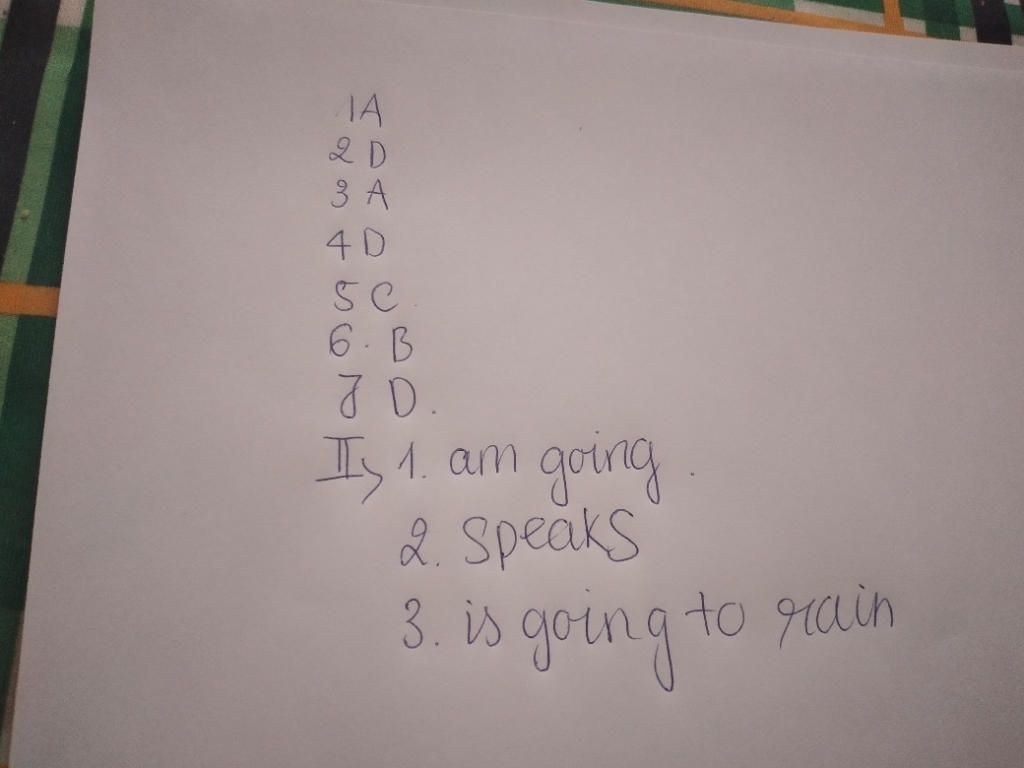 1A
2 D
3 A
4 D
5 C.
6. B
7 D.
II, 1. am going.
2. speaks
3. is going to rain